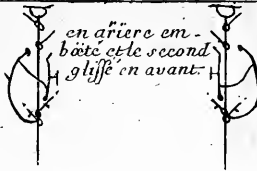 en ariere em-
bœté et le second
glissé en avant.